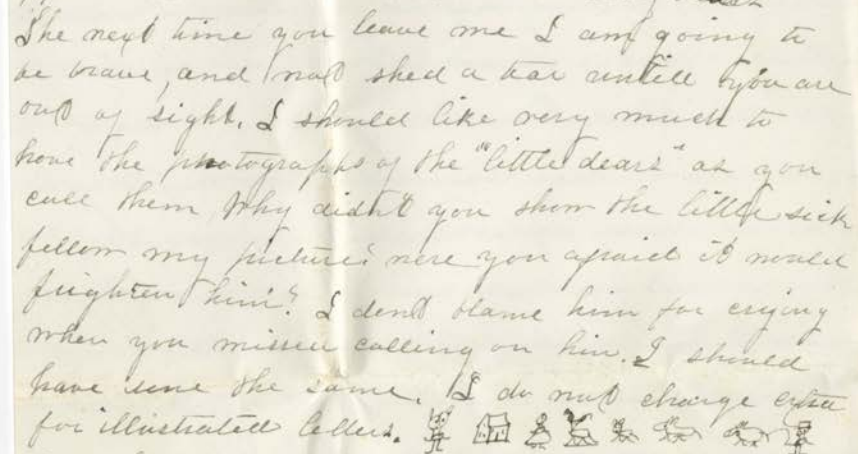 The next time you leave me I am going to
be brave, and not shed a tear untill you are
out of sight. I should like very much to
have the photographs of the "little dears" as you
call them Why didn't you show the little sick
fellow my picture? were you afraid it would
frighten him? I don't blame him for crying
when you missed calling on him. I should
have done the same. I do not charge extra
for illustrated letters.